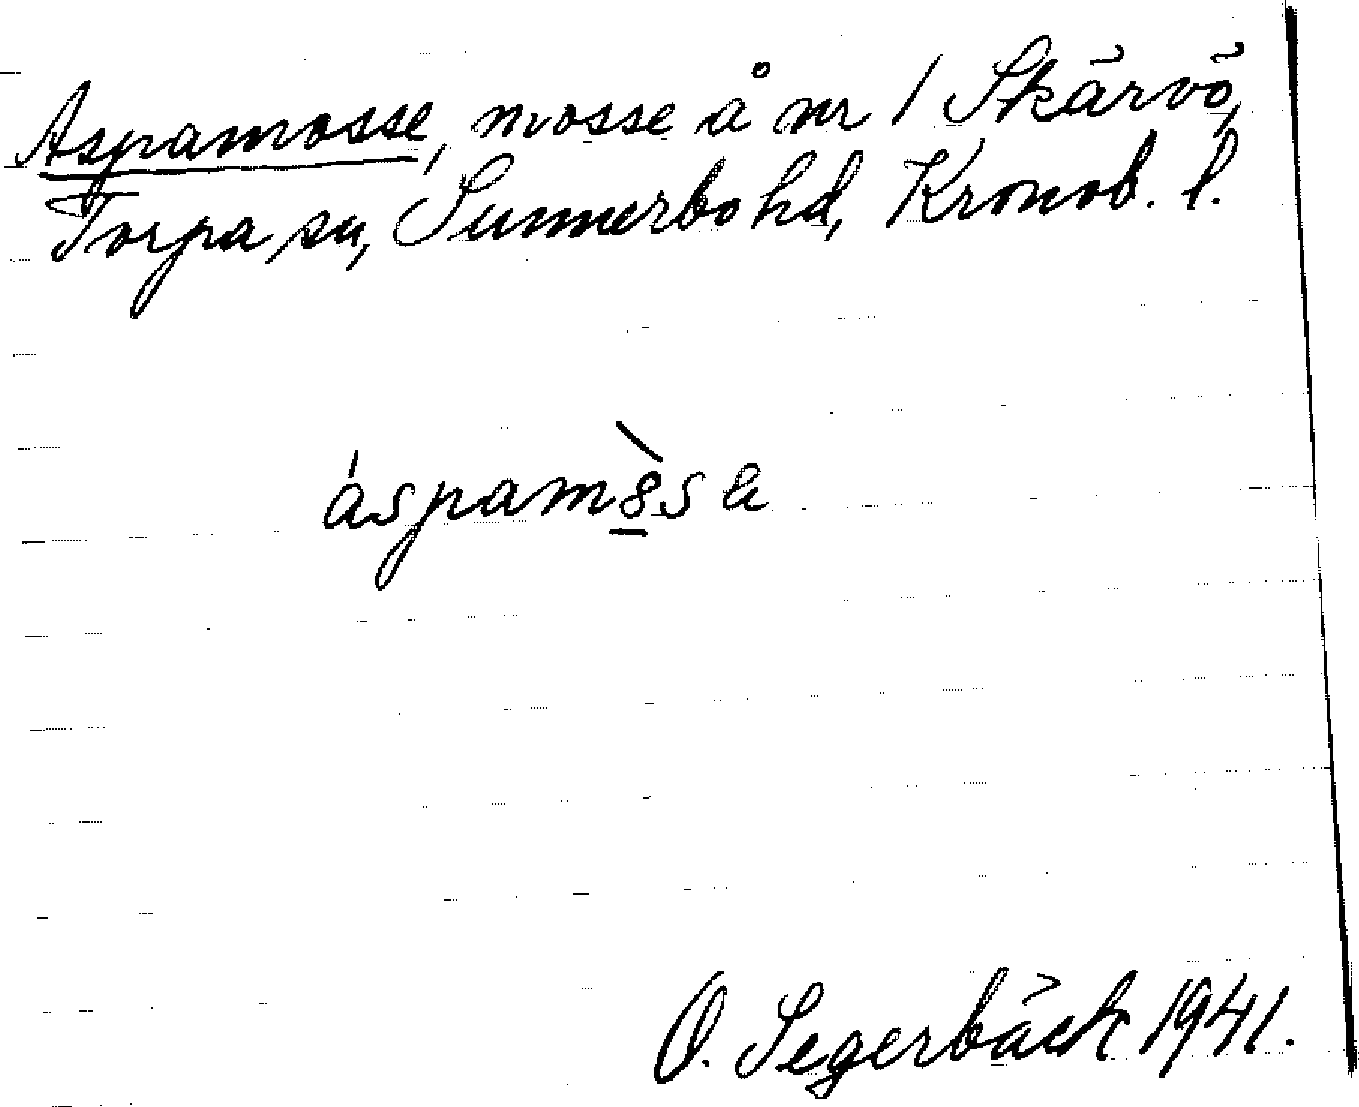 Aspamosse, mosse å nr 1 Skärvö,
Torpa sn, Sunnerbo hd, Kronob. l.
O. Segerbäck 1941.